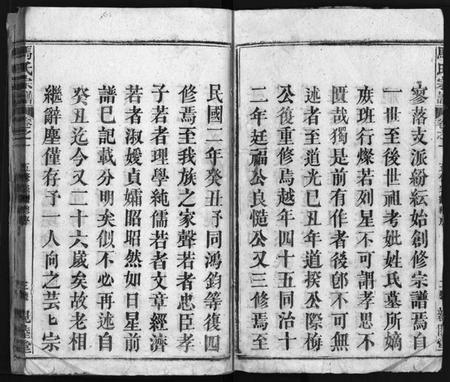 寥落支派紛紜始創修宗譜焉自
一世至後世祖考妣姓氏墓所嫡
族班行燦若列星不可謂孝思不
匱哉獨是前有作者後卽不可無
述者至道光己丑年道揆公際梅
公後重修焉越年四十五同治十
二年廷福公良慥公又三修焉至
馬氏宗譜 卷之一
民國二年癸丑予同鴻鈞等復四
修焉至我族之家聲若者忠臣孝
子若者理學純儒若者文章經濟
若者淑媛貞孀昭昭然如日星前
譜已記載分明矣似不必再述自
癸丑迄今又二十六歲矣故老相
繼辭塵僅存予一人向之芸匕宗
馬氏宗譜 卷之一